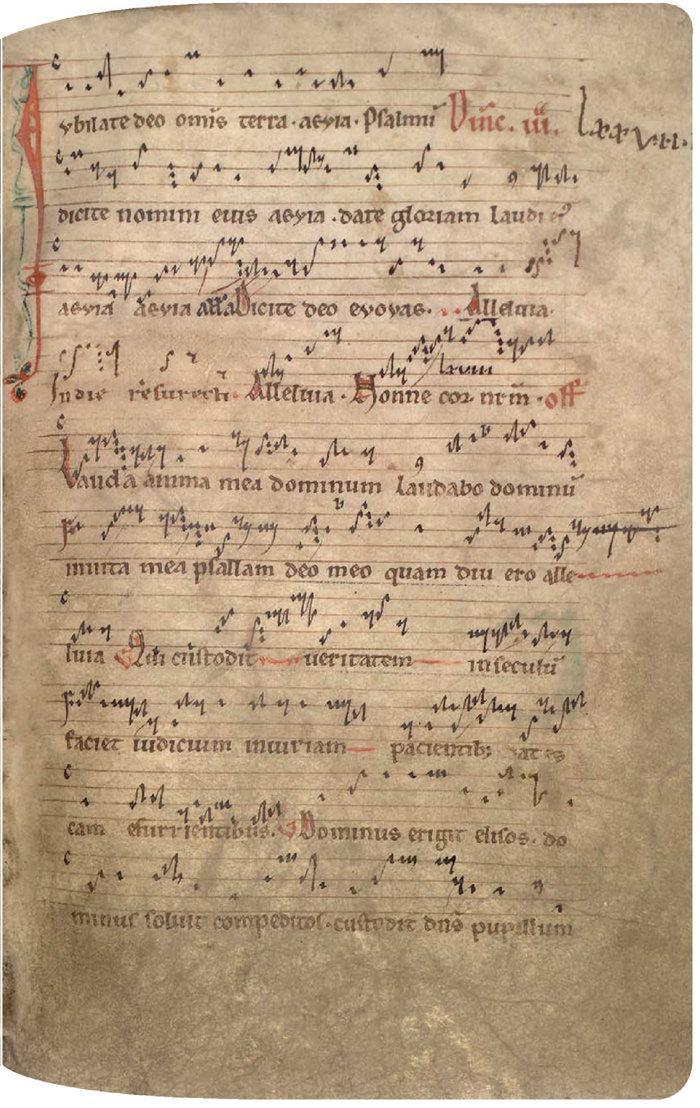 Iybilate deo om̄is terra · aevia · Psalmū Dn̄ic. iii. lxxvii.
dicite nomini eius aevia · date gloriam laudi eiꝰ
aevia aevia aevia Dicite deo evovae. Alleluia.
In die resurecti Alleluia · Nonne cor nrm̄ · off
Lauda anima mea dominum laudabo dominū
in uita mea psallam deo meo quam diu ero alle
luia Qui custodit ueritatem in seculū
faciet iudicium iniuriam pacientib; dat es
cam esurrientibus. Dominus erigit elisos. do
minus soluit compeditos · custodit dn̄s pupillum